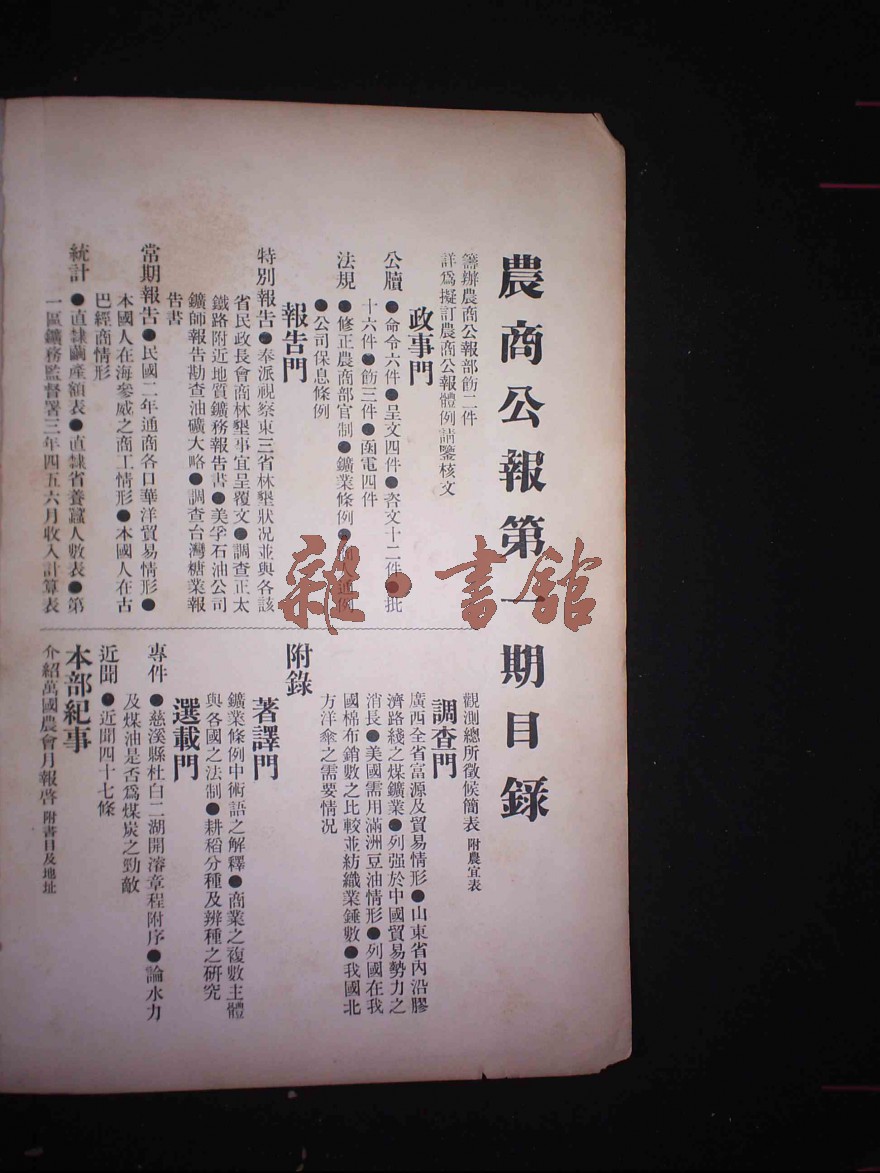 農商公報第一期目錄
籌辦農商公報部飭二件
詳爲擬訂農商公報體例請鑒核文
政事門
公牘 ●命令六件●呈文四件●咨文十二件●批
十六件●飭三件●函電四件
法規 ●修正農商部官制●鑛業條例●商人通例
●公司保息條例
報告門
特別報告●奉派視察東三省林墾狀况並與各該
省民政長會商林墾事宜呈覆文●調查正太
鐵路附近地質鑛務報告書●美孚石油公司
鑛師報告勘查油礦大略●調查台灣糖業報
告書
常期報告●民國二年通商各口華洋貿易情形●
本國人在海參威之商工情形●本國人在古
巴經商情形
統計 ●直隸繭產額表●直隸省養蠶人數表●第
一區鑛務監督署三年四五六月收入計算表
觀測總所徵候簡表 附農宜表
調查門
廣西全省富源及貿易情形●山東省內沿膠
濟路綫之煤鑛業●列强於中國貿易勢力之
消長●美國需用滿洲豆油情形●列國在我
國棉布銷數之比較並紡織業錘數●我國北
方洋傘之需要情况
附錄
著譯門
鑛業條例中術語之解釋●商業之複數主體
與各國之法制●耕稻分種及辨種之研究
選載門
專件 ●慈溪縣杜白二湖開濬章程附序●論水力
及煤油是否爲煤炭之勁敵
近聞 ●近聞四十七條
本部紀事
介紹萬國農會月報啓 附書目及地址
雜·書館